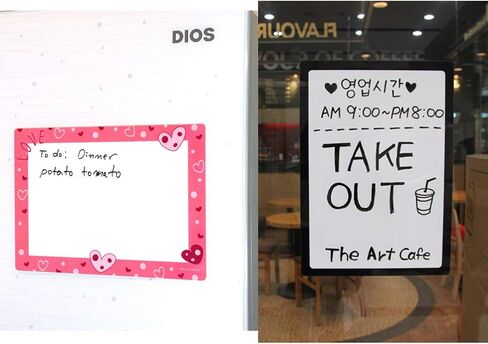 DIOS
LOVE
To do: Dinner
potato tomato
FLAVOUR
OUR OF COFFEE
♥영업시간♥
AM 9:00~PM8:00
TAKE
OUT
The Art Cafe